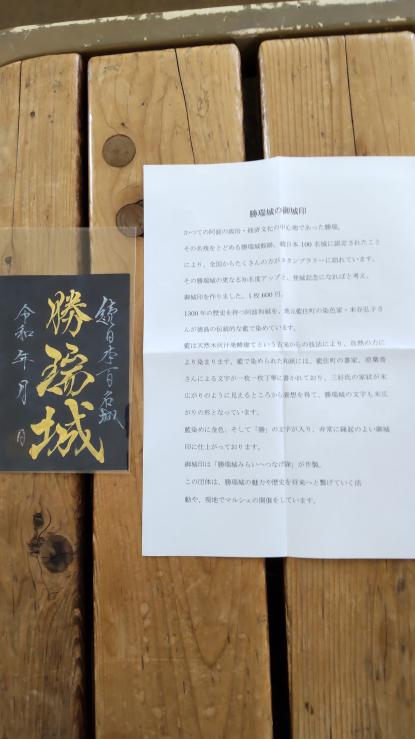 続日本百名城
勝瑞城
令和 年 月 日
勝瑞城の御城印
かつての阿波の政治・経済文化の中心地であった勝瑞。
その名残をとどめる勝瑞城館跡。続日本100名城に選定されたこと
により、全国からたくさんの方がスタンプラリーに訪れています。
その勝瑞城の更なる知名度アップと、登城記念になればと考え、
御城印を作りました。1枚600円。
1300年の歴史を持つ阿波和紙を、地元藍住町の染色家・米谷弘子さ
んが徳島の伝統的な藍で染めています。
藍は天然木灰汁発酵建てという古来からの技法により、自然の力に
より染まります。藍で染められた和紙には、藍住町の書家、
さんによる文字が一枚一枚丁寧に書かれており、三好氏の家紋が末
広がりのように見えるところから着想を得て、勝瑞城の文字も末広
がりの形となっています。
藍染めに金色、そして「勝」の文字が入り、非常に縁起のよい御城
印に仕上がっております。
御城印は「勝瑞城みらいへつなげ隊」が作製。
この団体は、勝瑞城の魅力や歴史を将来へと繋げていく活
動や、現地でマルシェの開催をしています。